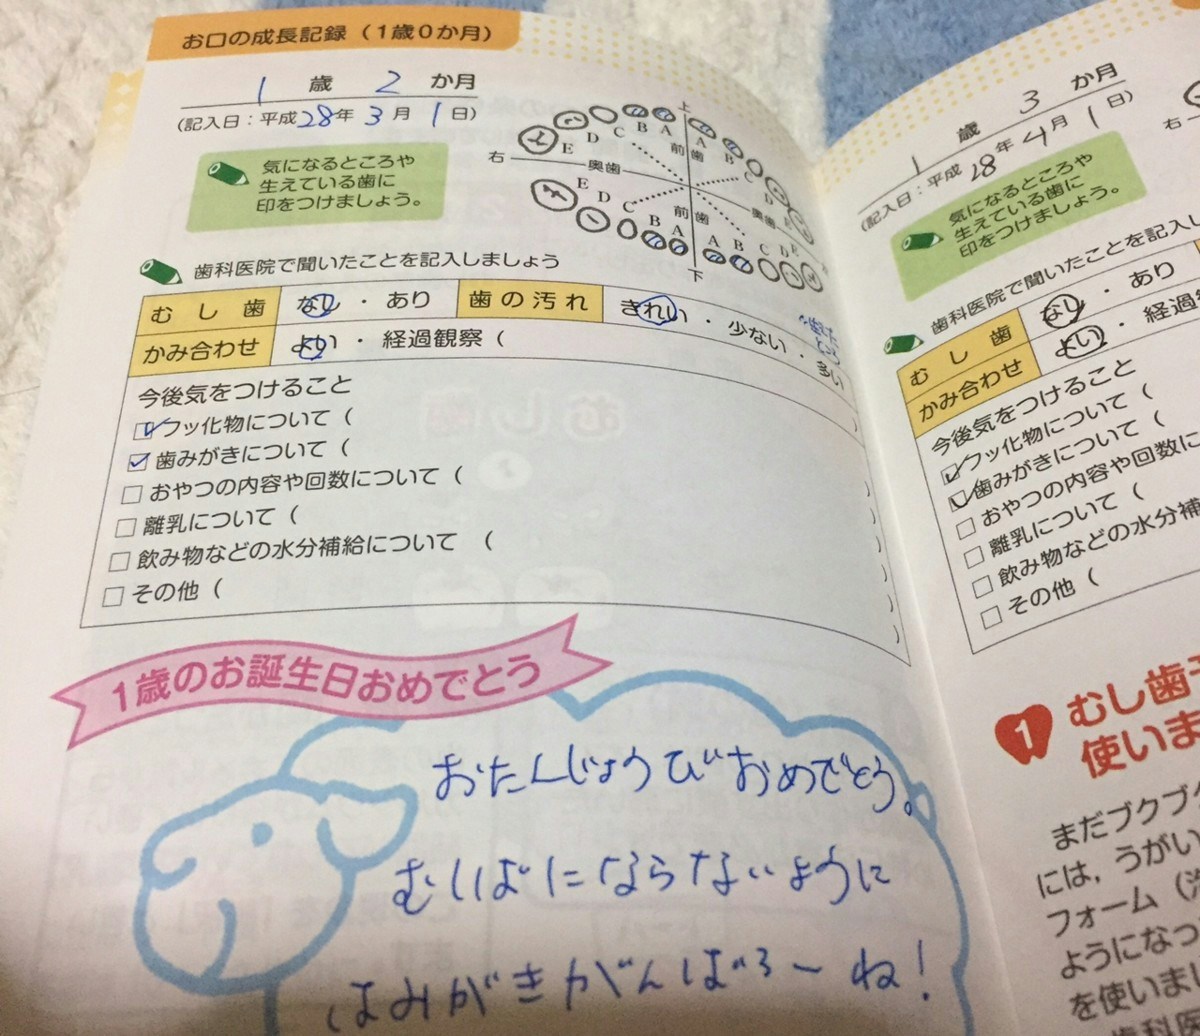 お口の成長記録（1歳0か月）
1 歳 2 か月
（記入日：平成28年 3月 1日）
気になるところや
生えている歯に
印をつけましょう。
上
右
E D C B A A B C D E
前歯
奥歯 奥歯
E D C B A A B C D E
前歯
下
歯科医院で聞いたことを記入しましょう
むし歯 なし・あり 歯の汚れ きれい・少ない・多い
かみ合わせ よい・経過観察（
今後気をつけること
☑フッ化物について（ ）
☑歯みがきについて（ ）
□おやつの内容や回数について（ ）
□離乳について（ ）
□飲み物などの水分補給について （ ）
□その他（ ）
1歳のお誕生日おめでとう
おたんじょうびおめでとう。
むしばにならないように
はみがきがんばろーね！
1 歳 3 か月
（記入日：平成28年 4月 1日）
右
気になるところや
生えている歯に
印をつけましょう。
歯科医院で聞いたことを記入し
むし歯 なし・あり
かみ合わせ よい・経過
今後気をつけること
☑フッ化物について（
☑歯みがきについて（
□おやつの内容や回数に
□離乳について（
□飲み物などの水分補
□その他（
1 むし歯予
使いま
まだブクブク
には，うがい
フォーム（
ようになっ
を使いまし
科医